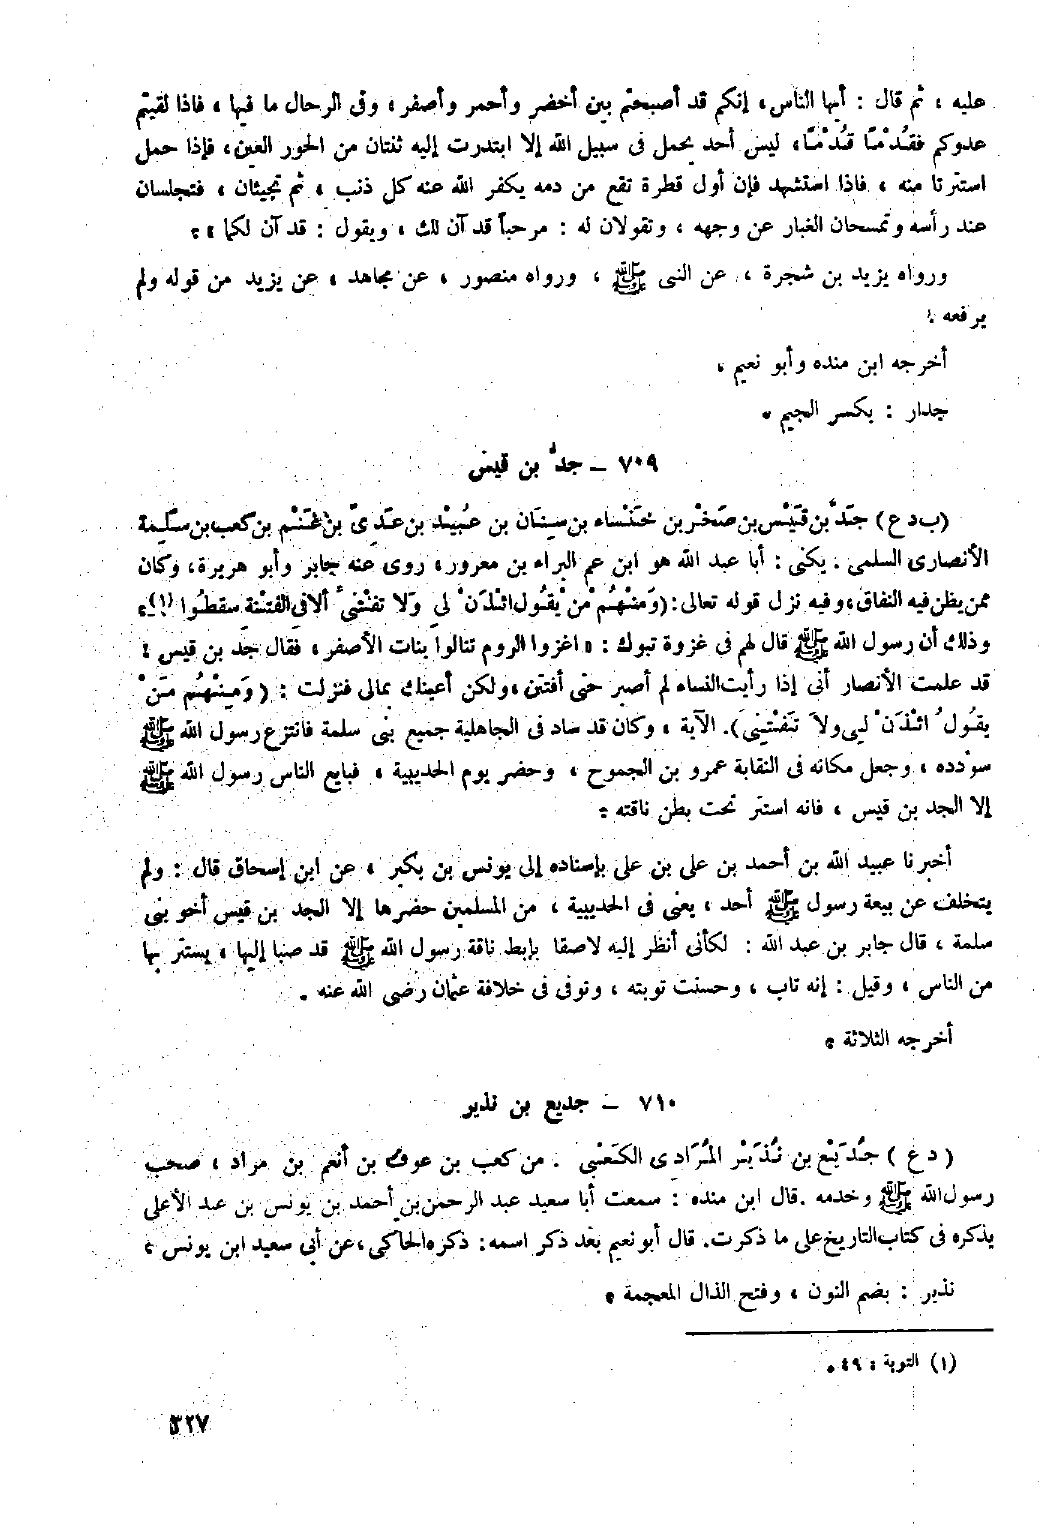 عليه ، ثم قال : أيها الناس ، إنكم قد أصبحتم بين أخضر وأحمر وأصفر ، وفى الرحال ما فيها ، فاذا لقيتم
عدوكم فقُدْمًا قُدْمًا ، ليس أحد يحمل فى سبيل الله إلا ابتدرت إليه ثنتان من الحور العين ، فإذا حمل
استترتا منه ، فاذا استشهد فإن أول قطرة تقع من دمه يكفر الله عنه كل ذنب ، ثم تجيئان ، فتجلسان
عند رأسه وتمسحان الغبار عن وجهه ، وتقولان له : مرحباً قد آن لك ، ويقول : قد آن لكما » .
ورواه يزيد بن شجرة ، عن النبى ﷺ ، ورواه منصور ، عن مجاهد ، عن يزيد من قوله ولم
يرفعه .
أخرجه ابن منده وأبو نعيم .
جدار : بكسر الجيم .
٧٠٩ – جدُّ بن قيس
(ب د ع) جَدّ بن قَيْس بن صَخْر بن خَنْساء بن سِنَان بن عُبَيْد بن عَدِيّ بن غَنْم بن كعب بن سَلِمة
الأنصارى السلمى . يكنى : أبا عبد الله هو ابن عم البراء بن معرور ، روى عنه جابر وأبو هريرة ، وكان
ممن يظن فيه النفاق ، وفيه نزل قوله تعالى : (وَمِنْهُمْ مَنْ يَقُولُ ائْذَنْ لِي وَلا تَفْتِنِّي أَلا فِي الْفِتْنَةِ سَقَطُوا (١)) .
وذلك أن رسول الله ﷺ قال لهم فى غزوة تبوك : « اغزوا الروم تنالوا بنات الأصفر ، فقال جد بن قيس :
قد علمت الأنصار أنى إذا رأيت النساء لم أصبر حتى أفتتن ، ولكن أعينك بمالى فنزلت : ( وَمِنْهُمْ مَنْ
يَقُولُ ائْذَنْ لِي وَلاَ تَفْتِنِّي ) . الآية ، وكان قد ساد فى الجاهلية جميع بنى سلمة فانتزع رسول الله ﷺ
سؤدده ، وجعل مكانه فى النقابة عمرو بن الجموح ، وحضر يوم الحديبية ، فبايع الناس رسول الله ﷺ
إلا الجد بن قيس ، فانه استتر تحت بطن ناقته .
أخبرنا عبيد الله بن أحمد بن على بن على بإسناده إلى يونس بن بكير ، عن ابن إسحاق قال : ولم
يتخلف عن بيعة رسول ﷺ أحد ، يعنى فى الحديبية ، من المسلمين حضرها إلا الجد بن قيس أخو بنى
سلمة ، قال جابر بن عبد الله : لكأنى أنظر إليه لاصقا بإبط ناقة رسول الله ﷺ قد صبا إليها ، يستتر بها
من الناس ، وقيل : إنه تاب ، وحسنت توبته ، وتوفى فى خلافة عثمان رضى الله عنه .
أخرجه الثلاثة .
٧١٠ – جديع بن نذير
( د ع ) جُدَيْع بن نُذَيْر المُرَادِى الكَعْبِى . من كعب بن عوف بن أنعم بن مراد ، صحب
رسول الله ﷺ وخدمه . قال ابن منده : سمعت أبا سعيد عبد الرحمن بن أحمد بن يونس بن عبد الأعلى
يذكره فى كتاب التاريخ على ما ذكرت . قال أبو نعيم بعد ذكر اسمه : ذكره الحاكى ، عن أبي سعيد ابن يونس ،
نذير : بضم النون ، وفتح الذال المعجمة .
(١) التوبة : ٤٩ .
٣٢٧